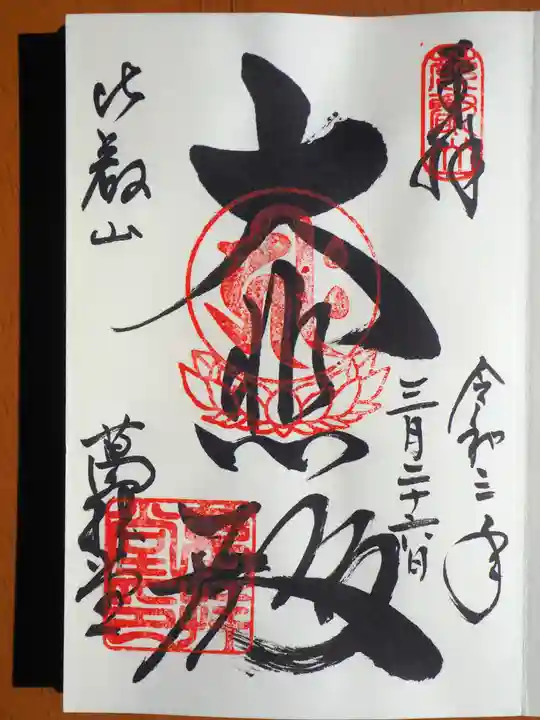 奉拝
令和二年
三月二十六日
大悲殿
比叡山
萬拝堂